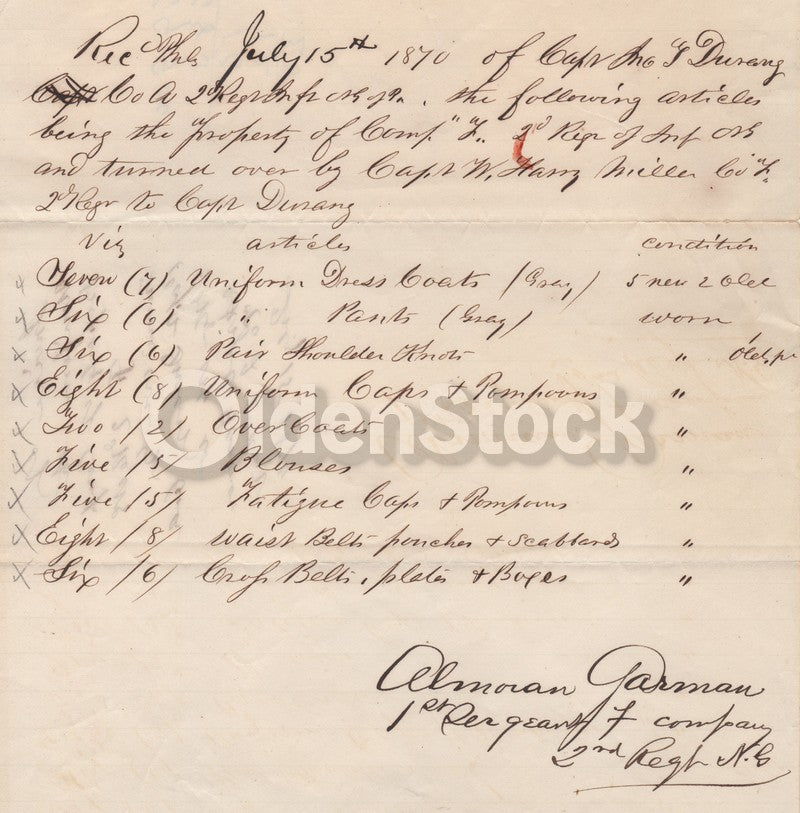 Rec'd Phila July 15th 1870 of Capt Jno T Durang
Capt Co A 2d Regt Inft NG of Pa. the following articles
being the property of Comp. "F". 2d Regt of Inf NG
and turned over by Capt W. Harry Miller Co "F"
2d Regt to Capt Durang
Viz articles condition
Seven (7) Uniform Dress Coats (Gray) 5 new 2 Old
Six (6) " Pants (Gray) worn
Six (6) Pair Shoulder Knots " Old,
Eight (8) Uniform Caps & Pompoons "
Two (2) Over Coats "
Five (5) Blouses "
Five (5) Fatigue Caps & Pompoons "
Eight (8) waist Belts pouches & Scabbards "
Six (6) Cross Belts, plates & Boxes "
OldenStock
Almoran Garman
1st Sergeant F company
2nd Regt N.G